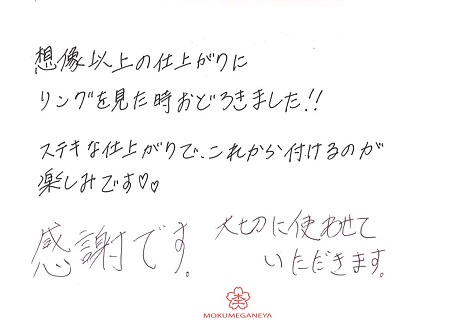 想像以上の仕上がりに
リングを見た時おどろきました!!
ステキな仕上がりで、これから付けるのが
楽しみです♡♡
感謝です。
大切に使わせて
いただきます。
杢
MOKUMEGANEYA